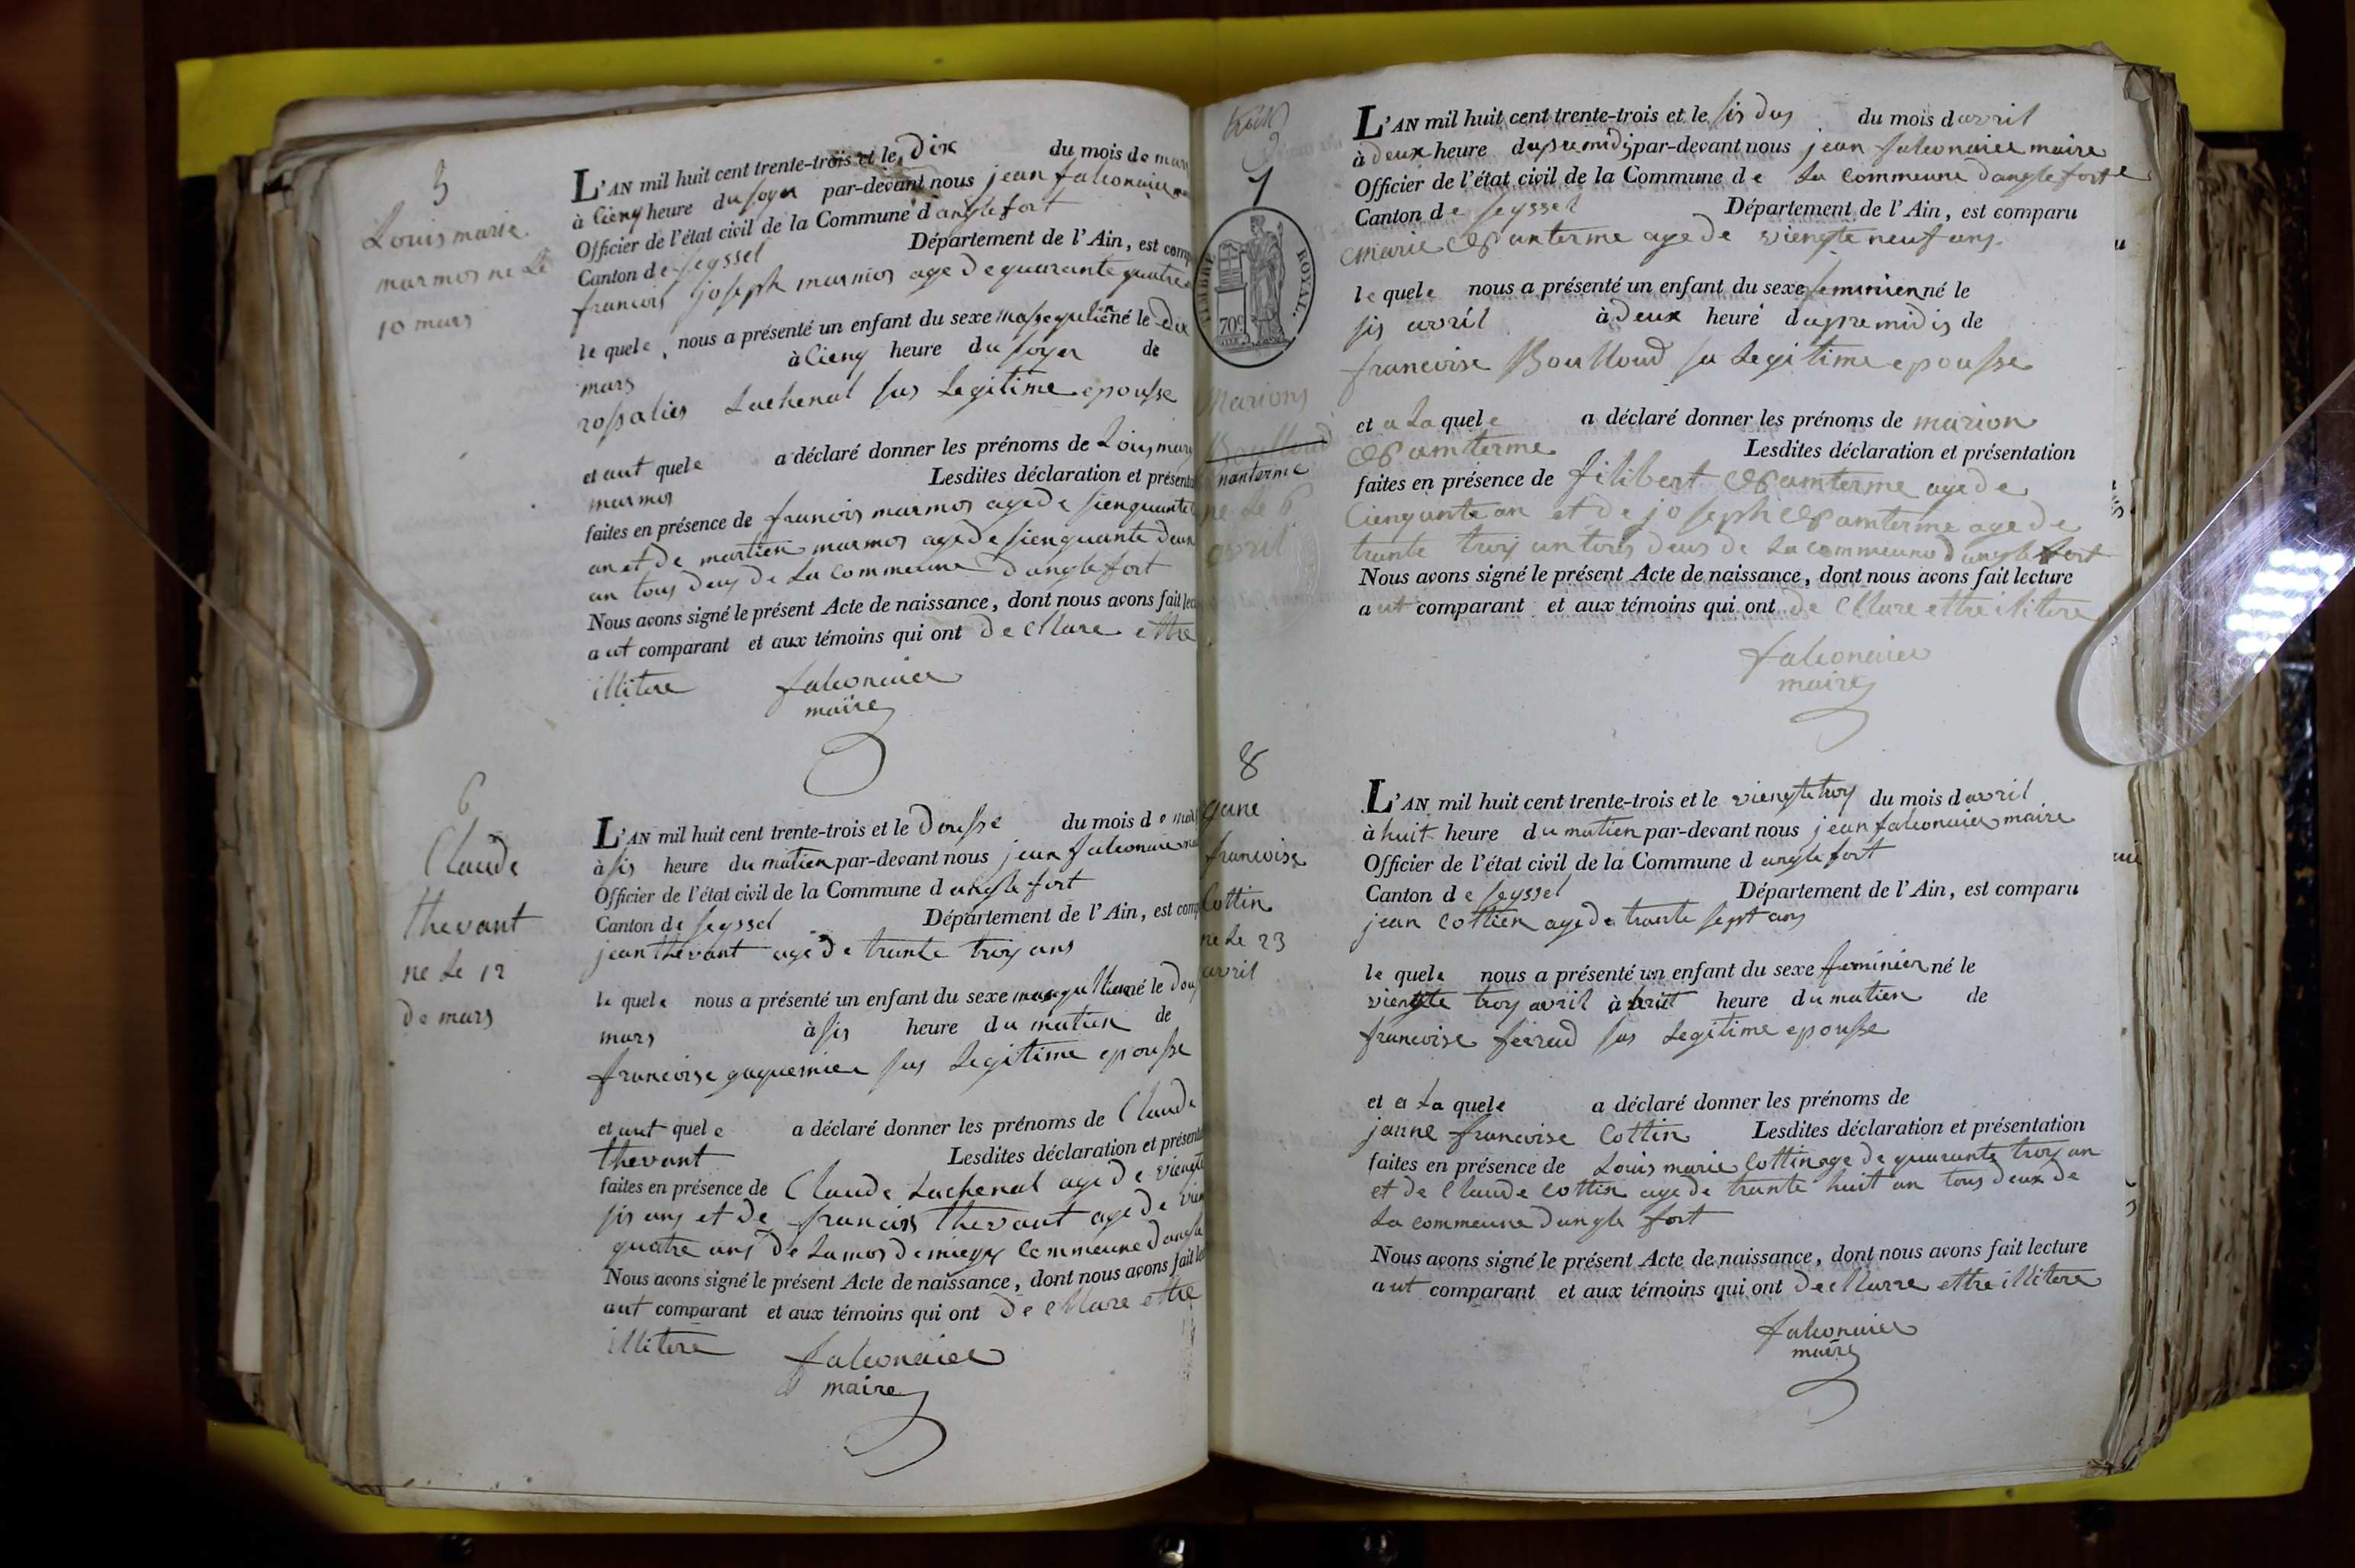 5
Louis marie
marmos ne Le
10 mars
L'AN mil huit cent trente-trois et le dix du mois de mars
à cienq heure du soyer par-devant nous jean falconnier
Officier de l'état civil de la Commune d anglefort
Canton de seyssel Département de l'Ain, est comp
francois joseph marmos age de quarante quatre
le quele nous a présenté un enfant du sexe né le dix
mars à cienq heure du soyer de
rossalies Lachenal sas Legitime epousse
et aut quele a déclaré donner les prénoms de Louis mary
marmos Lesdites déclaration et présenta
faites en présence de francois marmos age de sienquante
an et de martien marmos age de sienquante deux
an tous deus de La commeune d anglefort
Nous avons signé le présent Acte de naissance, dont nous avons fait lec
aut comparant et aux témoins qui ont de cllare ettre
illitere falconnier
maire
6
Claude
thevant
ne Le 12
de mars
L'AN mil huit cent trente-trois et le dousse du mois de mars
à sis heure du matien par-devant nous jean falconnier
Officier de l'état civil de la Commune d anglefort
Canton de seyssel Département de l'Ain, est comp
jean thevant age de trante troy ans
le quele nous a présenté un enfant du sexe né le dou
mars à sis heure du matien de
francoise guguemier sas Legitime epousse
et aut quele a déclaré donner les prénoms de Claude
thevant Lesdites déclaration et présenta
faites en présence de Claude Lachenal age de viengte
sis ans et de francois thevant age de vien
quatre ans de commeune d angle
Nous avons signé le présent Acte de naissance, dont nous avons fait lec
aut comparant et aux témoins qui ont de cllare ettre
illitere falconnier
maire
7
TIMBRE ROYAL.
70c
Marions
Boulloud
nanterme
ne Le 6
avril
L'AN mil huit cent trente-trois et le sis du mois d avril
à deux heure dapremidis par-devant nous jean falconnier maire
Officier de l'état civil de la Commune de La commeune danglefort
Canton de seyssel Département de l'Ain, est comparu
marie nanterme age de viengte neuf ans
le quele nous a présenté un enfant du sexe feminien né le
sis avril à deux heure dapremidis de
francoise Boulloud sa Legitime epousse
et a La quele a déclaré donner les prénoms de marion
namterme Lesdites déclaration et présentation
faites en présence de filibert namterme age de
cienquante an et de joseph namterme age de
trante troy an tous deus de La commeune d anglefort
Nous avons signé le présent Acte de naissance, dont nous avons fait lecture
aut comparant et aux témoins qui ont de cllare ettre ilitere
falconnier
maire
8
jane
francoise
Cottin
ne Le 23
avril
L'AN mil huit cent trente-trois et le viengte troy du mois d avril
à huit heure du matien par-devant nous jean falconnier maire
Officier de l'état civil de la Commune d anglefort
Canton de seyssel Département de l'Ain, est comparu
jean Cottien age de trante sept ans
le quele nous a présenté un enfant du sexe feminien né le
viengte troy avril à huit heure du matien de
francoise feiraud sas Legitime epousse
et a La quele a déclaré donner les prénoms de
janne francoise Cottin Lesdites déclaration et présentation
faites en présence de Louis marie Cottin age de quarante troy an
et de Claude Cottin age de trante huit an tous deux de
La commeune dangle fort
Nous avons signé le présent Acte de naissance, dont nous avons fait lecture
aut comparant et aux témoins qui ont de cllarre ettre illitere
falconnier
maire